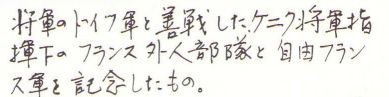 将軍のドイツ軍と善戦した、ケニク将軍指
揮下のフランス外人部隊と自由フラン
ス軍を記念したもの。